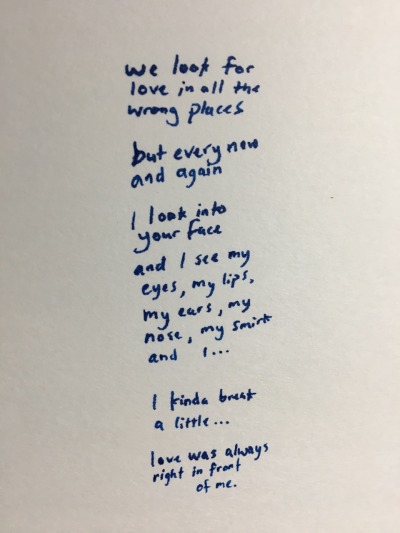 we look for
love in all the
wrong places
but every now
and again
I look into
your face
and I see my
eyes, my lips,
my ears, my
nose, my smirk
and I...
I kinda break
a little...
love was always
right in front
of me.